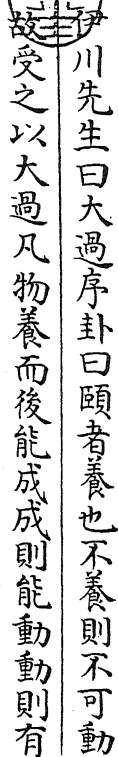 伊川先生曰大過序卦曰頤者養也不養則不可動
故受之以大過凡物養而後能成成則能動動則有